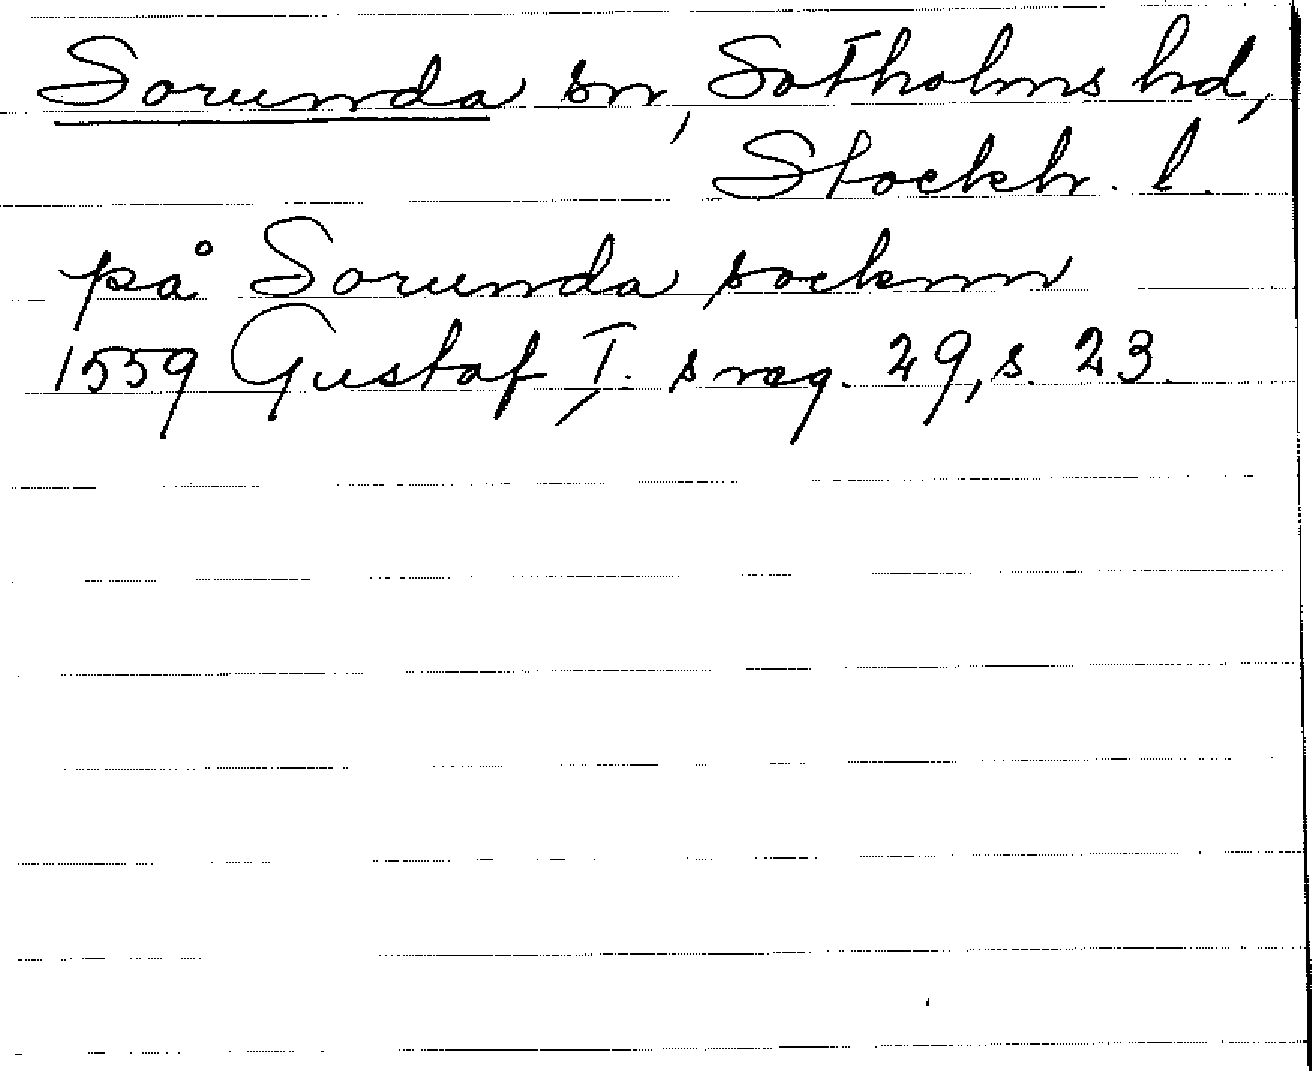 Sorunda sn, Sotholms hd,
Stockh. l.
på Sorunda socknn
1559 Gustaf I. s reg. 29, s. 23.